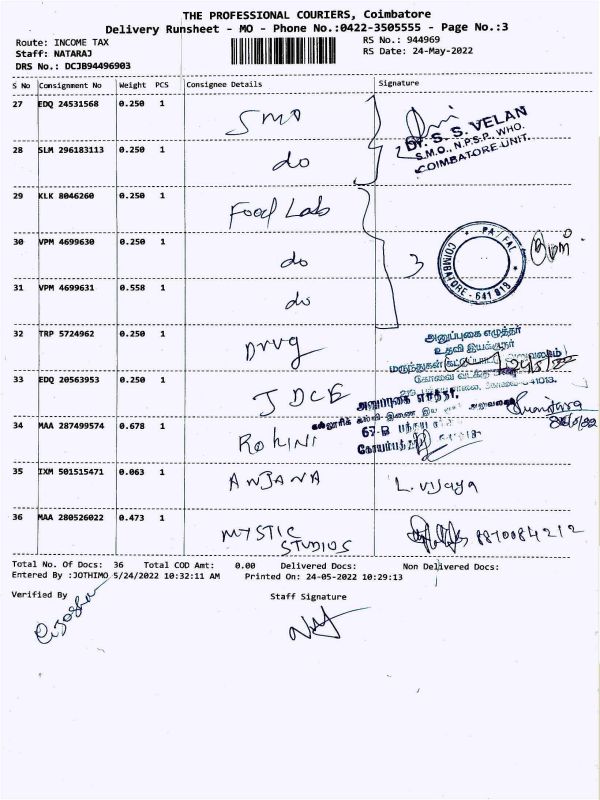 THE PROFESSIONAL COURIERS, Coimbatore
Delivery Runsheet - MO - Phone No.:0422-3505555 - Page No.:3
Route: INCOME TAX
RS No.: 944969
Staff: NATARAJ
RS Date: 24-May-2022
DRS No.: DCJB94496903
S No Consignment No Weight PCS Consignee Details Signature
27 EDQ 24531568 0.250 1 SMO
Dr. S. S. VELAN
S.M.O., N.P.S.P., WHO.
COIMBATORE UNIT.
28 SLM 296183113 0.250 1 do
29 KLK 8046260 0.250 1 Food Lab
30 VPM 4699630 0.250 1 do 3
COIMBATORE - 641 018
31 VPM 4699631 0.558 1 do
32 TRP 5724962 0.250 1 Drug
அனுப்புகை எழுத்தர்
உதவி இயக்குநர்
33 EDQ 20563953 0.250 1 JDCE
34 MAA 287499574 0.678 1 ROHINI
35 IXM 501515471 0.063 1 ANJANA L. Vijaya
36 MAA 280526022 0.473 1 MYSTIC STUDIOS 8870084212
Total No. Of Docs: 36 Total COD Amt: 0.00 Delivered Docs: Non Delivered Docs:
Entered By :JOTHIMO 5/24/2022 10:32:11 AM Printed On: 24-05-2022 10:29:13
Verified By Staff Signature